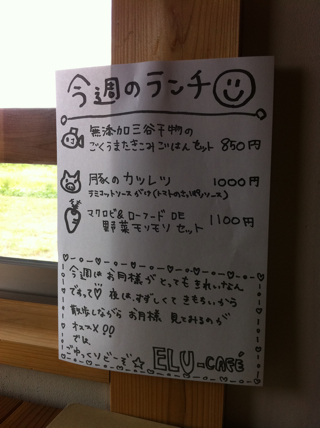 今週のランチ
無添加三谷干物の
ごくうまたきこみごはんセット 850円
豚のカツレツ 1000円
ラミコットソースがけ(トマトのさっぱりソース)
マクロビ&ローフード DE 1100円
野菜モリモリセット
今週はお月様がとってもきれいなん
ですって♡ 夜は、すずしくてきもちいから
散歩しながらお月様見てみるのが
オススメ!!
では
ごゆっくりどーぞ☆ ELU-CAFÉ